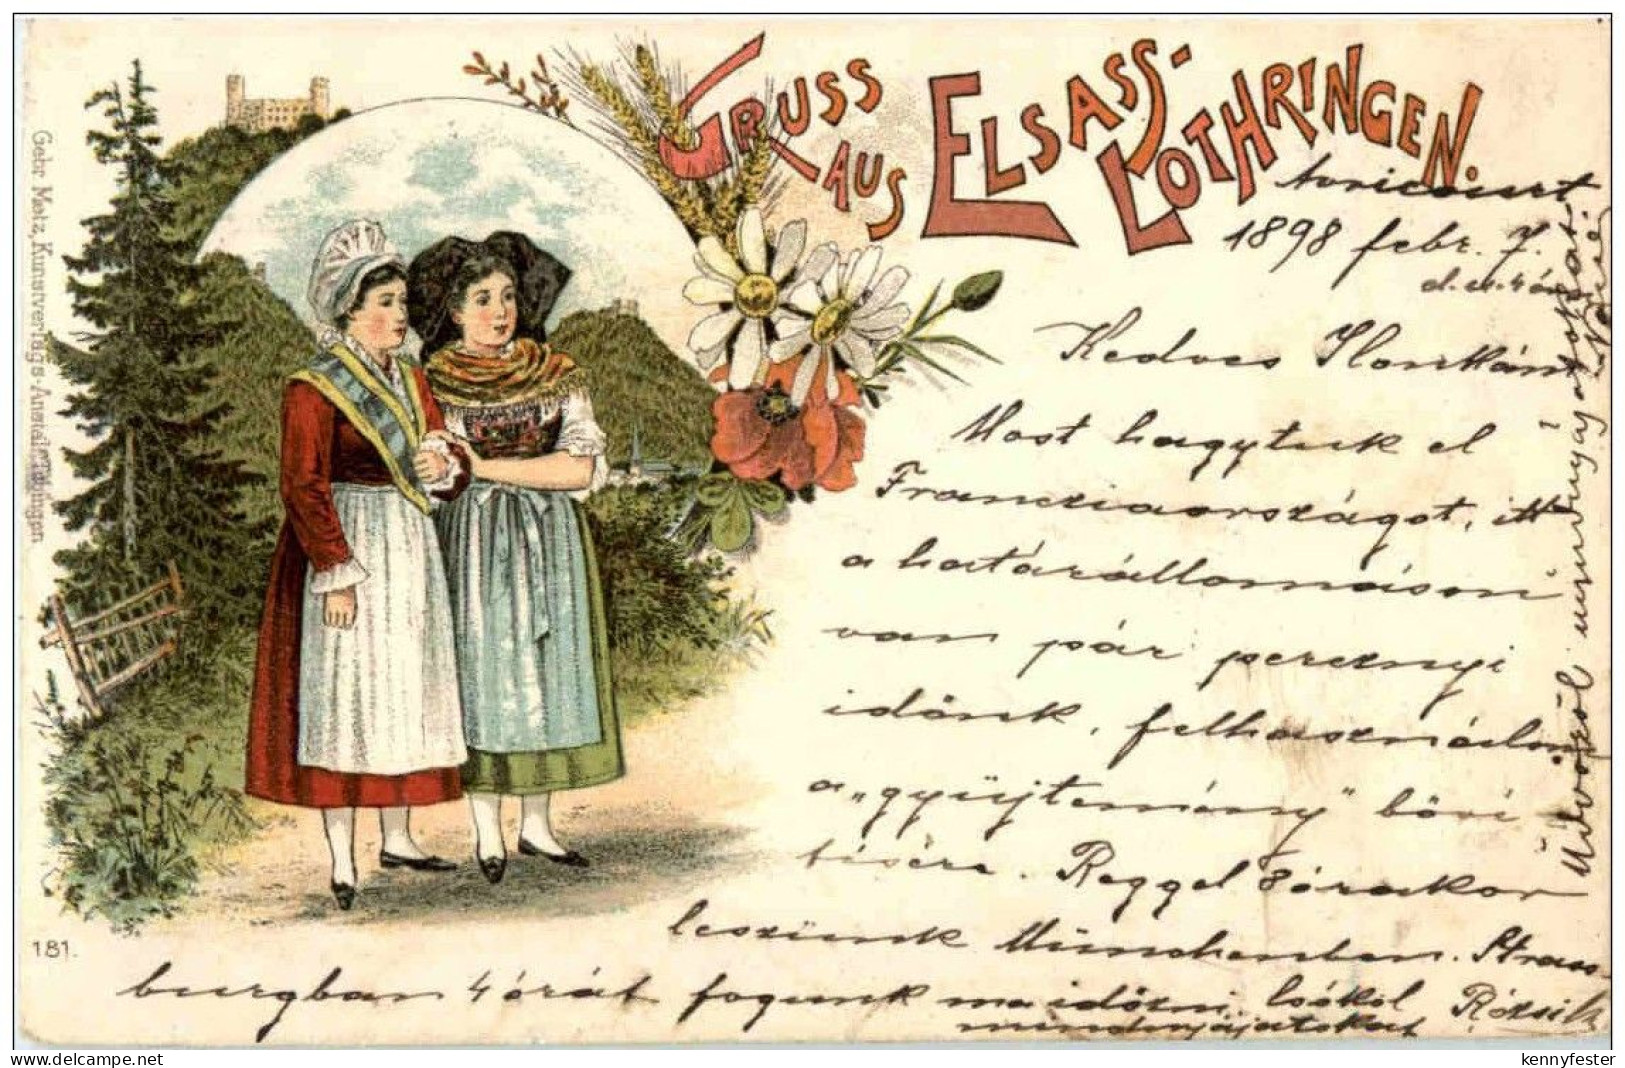 GRUSS AUS ELSASS-LOTHRINGEN.
Avricourt
1898 febr. 7.
Kedves Ilonkám
Most hagytuk el
Francziaországot, itt
a határállomáson
van pár percznyi
időnk, felhasználom
a „gyüjtemény” bőví
tésére. Reggel 8 órakor
leszünk Münchenben. Strass-
burgban 4 órát fogunk ma időzni. Csókol
mindnyájatokat
Rózsik
Üdvözöl mindnyájatokat
Gebr. Metz, Kunstverlags-Anstalt, Tübingen.
181.
delcampe.net
kennyfester